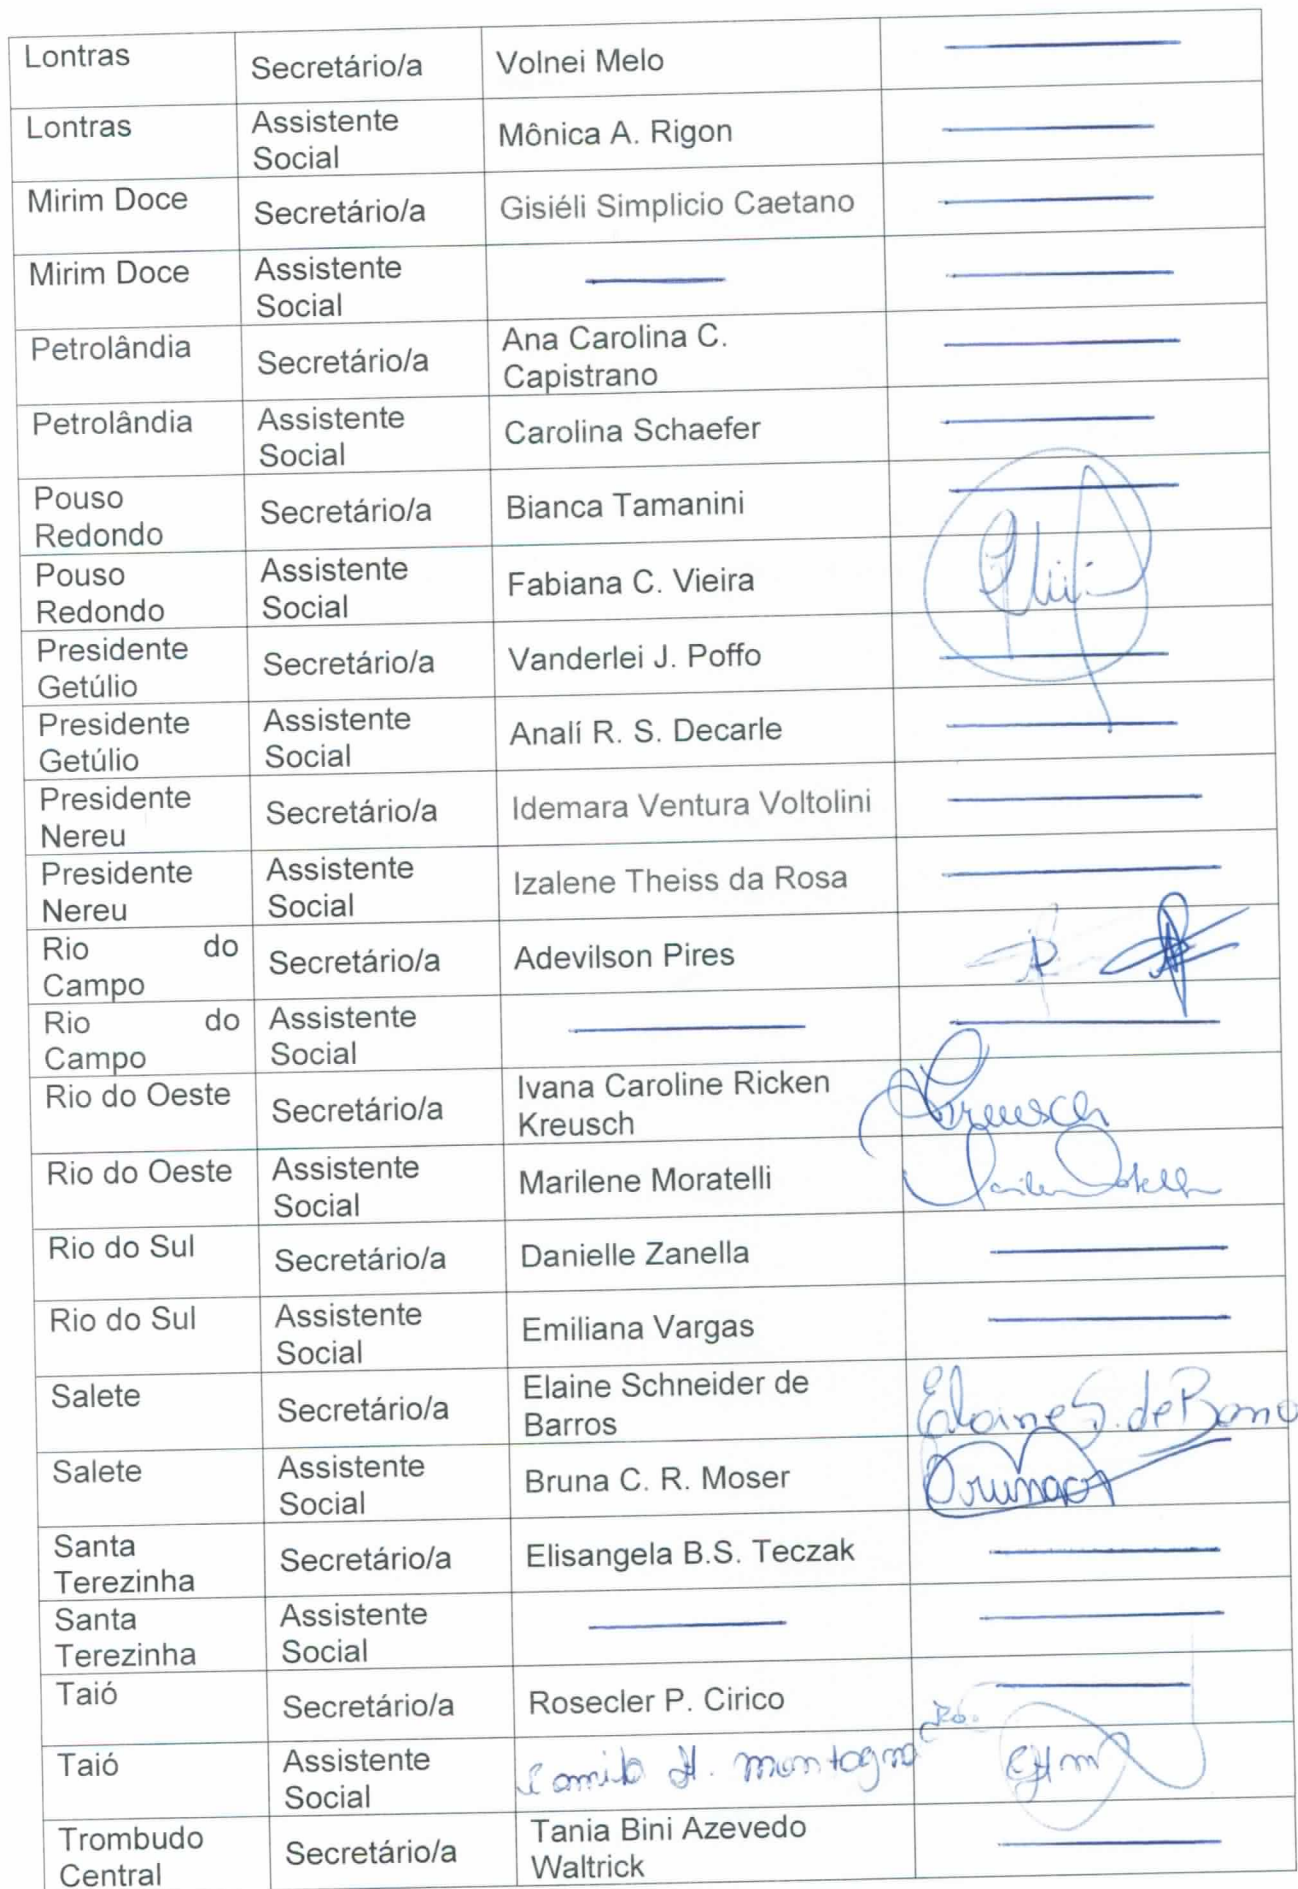 Lontras
Secretário/a
Volnei Melo
Lontras
Assistente
Social
Mônica A. Rigon
Mirim Doce
Secretário/a
Gisiéli Simplicio Caetano
Mirim Doce
Assistente
Social
Petrolândia
Secretário/a
Ana Carolina C.
Capistrano
Petrolândia
Assistente
Social
Carolina Schaefer
Pouso
Redondo
Secretário/a
Bianca Tamanini
Pouso
Redondo
Assistente
Social
Fabiana C. Vieira
Presidente
Getúlio
Secretário/a
Vanderlei J. Poffo
Presidente
Getúlio
Assistente
Social
Analí R. S. Decarle
Presidente
Nereu
Secretário/a
Idemara Ventura Voltolini
Presidente
Nereu
Assistente
Social
Izalene Theiss da Rosa
Rio do
Campo
Secretário/a
Adevilson Pires
Rio do
Campo
Assistente
Social
Rio do Oeste
Secretário/a
Ivana Caroline Ricken
Kreusch
Kreusch
Rio do Oeste
Assistente
Social
Marilene Moratelli
Rio do Sul
Secretário/a
Danielle Zanella
Rio do Sul
Assistente
Social
Emiliana Vargas
Salete
Secretário/a
Elaine Schneider de
Barros
Elaine S. de
Salete
Assistente
Social
Bruna C. R. Moser
Santa
Terezinha
Secretário/a
Elisangela B.S. Teczak
Santa
Terezinha
Assistente
Social
Taió
Secretário/a
Rosecler P. Cirico
Taió
Assistente
Social
Camila H. Montagna
Trombudo
Central
Secretário/a
Tania Bini Azevedo
Waltrick